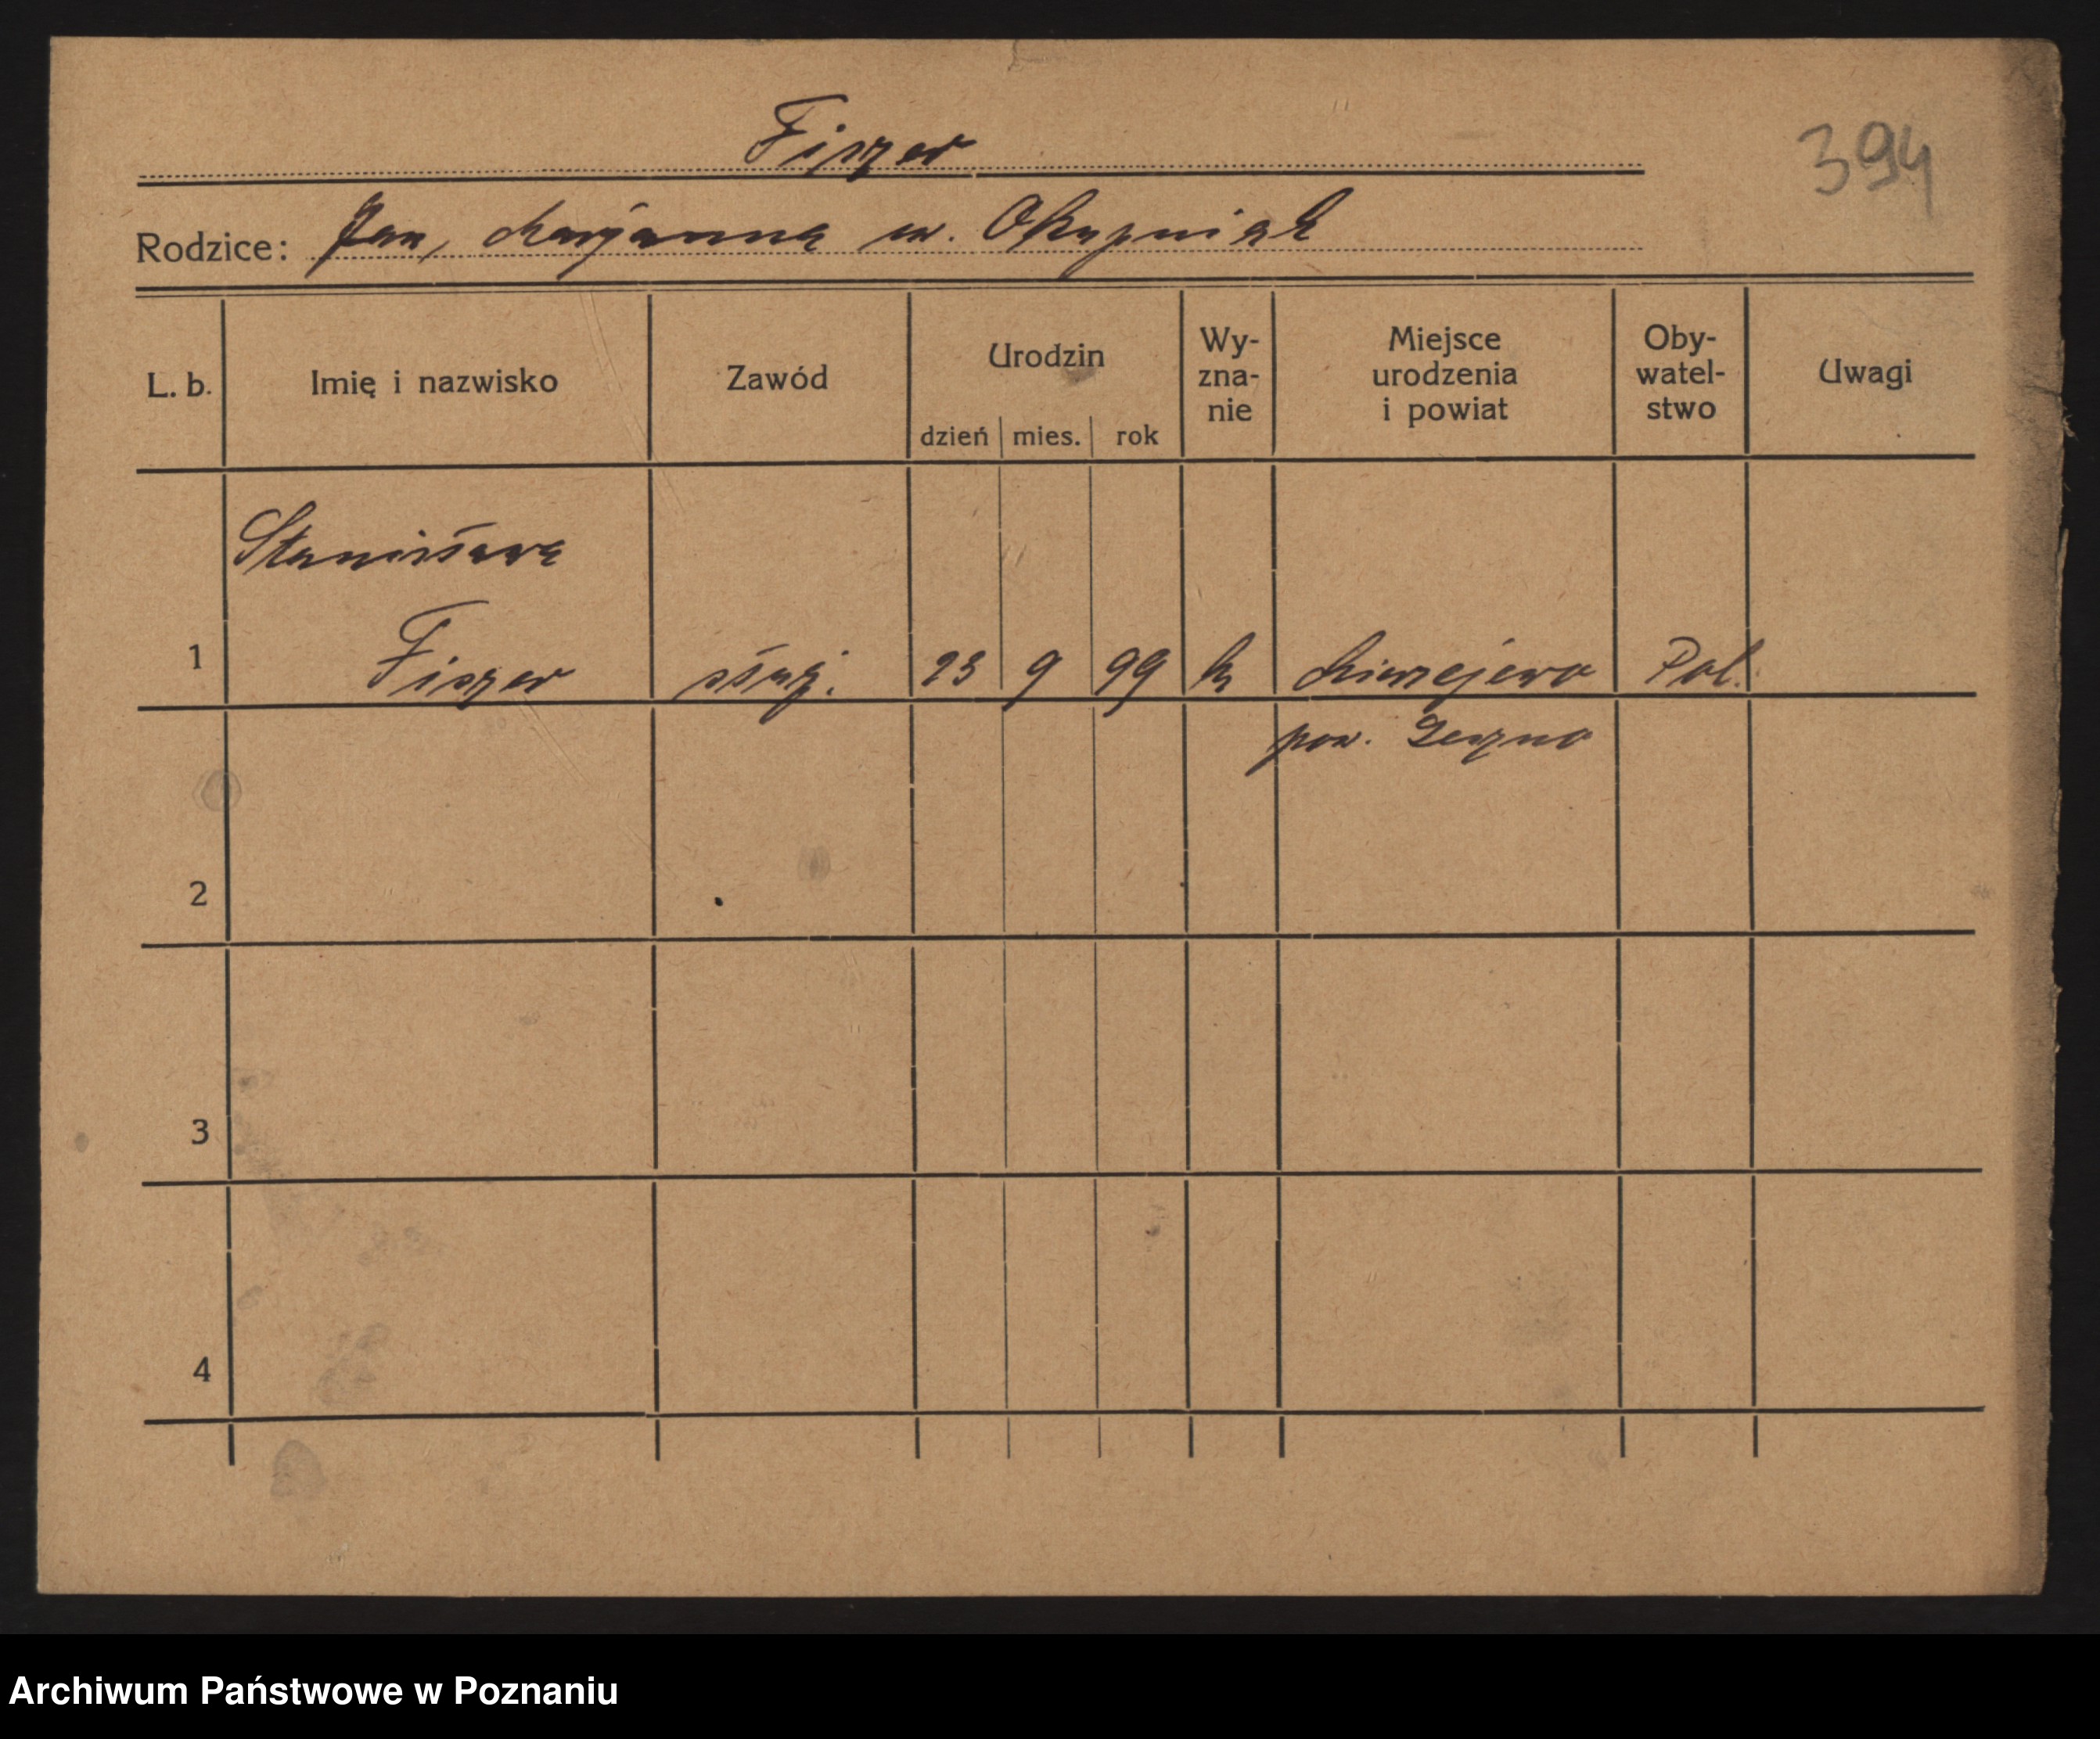 Fiszer
394
Rodzice: Jan, Marjanna u. Okupniak
L. b. Imię i nazwisko Zawód Urodzin dzień mies. rok Wy-zna-nie Miejsce urodzenia i powiat Oby-watel-stwo Uwagi
Stanisława
1 Fiszer służ. 23 9 99 k Pol.
pow. Leszno
2
3
4
Archiwum Państwowe w Poznaniu